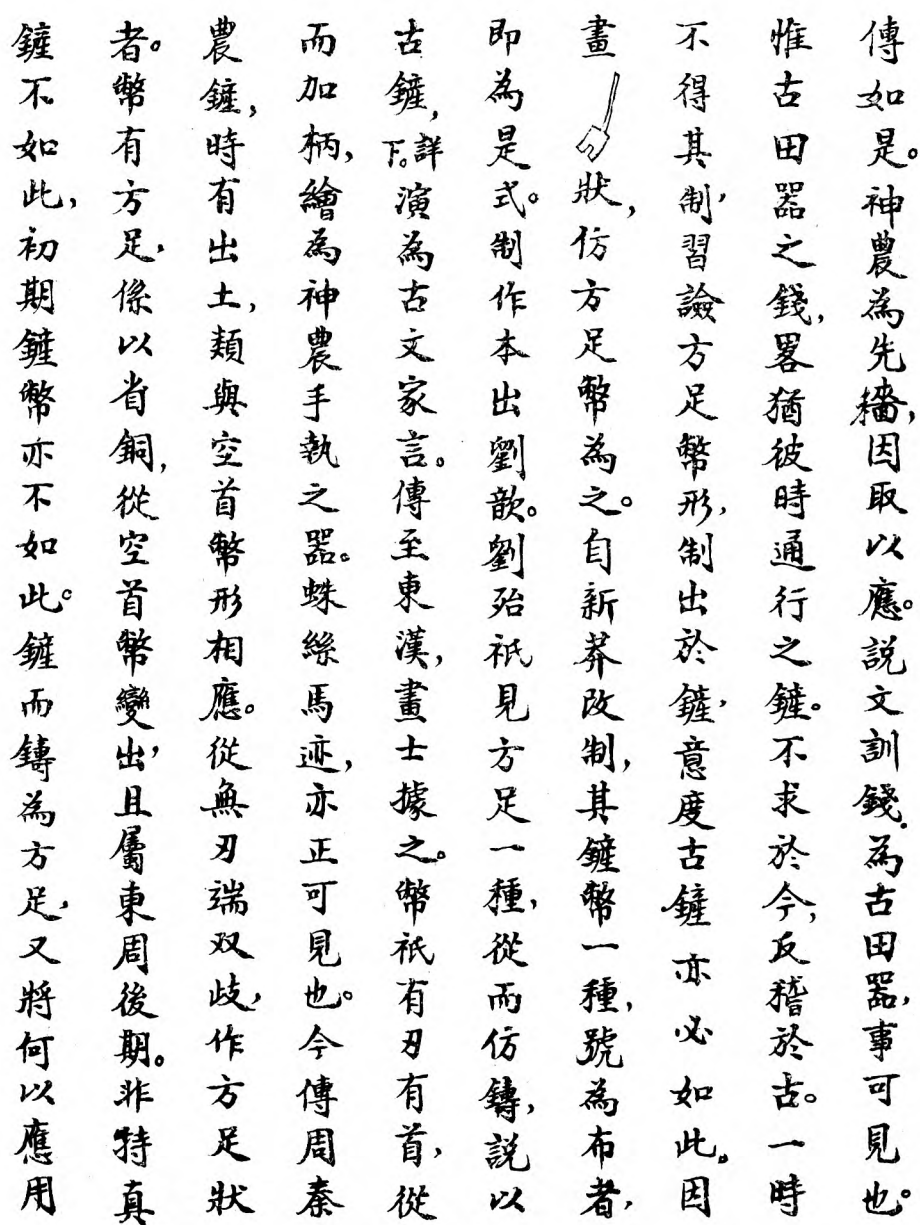 傳如是。神農為先穡,因取以應。説文訓錢為古田器,事可見也。
惟古田器之錢,畧猶彼時通行之鏟。不求於今,反稽於古。一時
不得其制,習譣方足幣形,制出於鏟,意度古鏟亦必如此。因
畫狀,仿方足幣為之。自新莽改制,其鏟幣一種,號為布者,
即為是式。制作本出劉歆。劉殆祇見方足一種,從而仿鑄,説以
古鏟,詳下。演為古文家言。傳至東漢,畫士據之。幣祇有刃有首,從
而加柄,繪為神農手執之器。蛛絲馬迹,亦正可見也。今傳周秦
農鏟,時有出土,類與空首幣形相應。從無刃端双歧,作方足狀
者。幣有方足,係以省銅,從空首幣變出,且屬東周後期。非特真
鏟不如此,初期鏟幣亦不如此。鏟而鑄為方足,又將何以應用